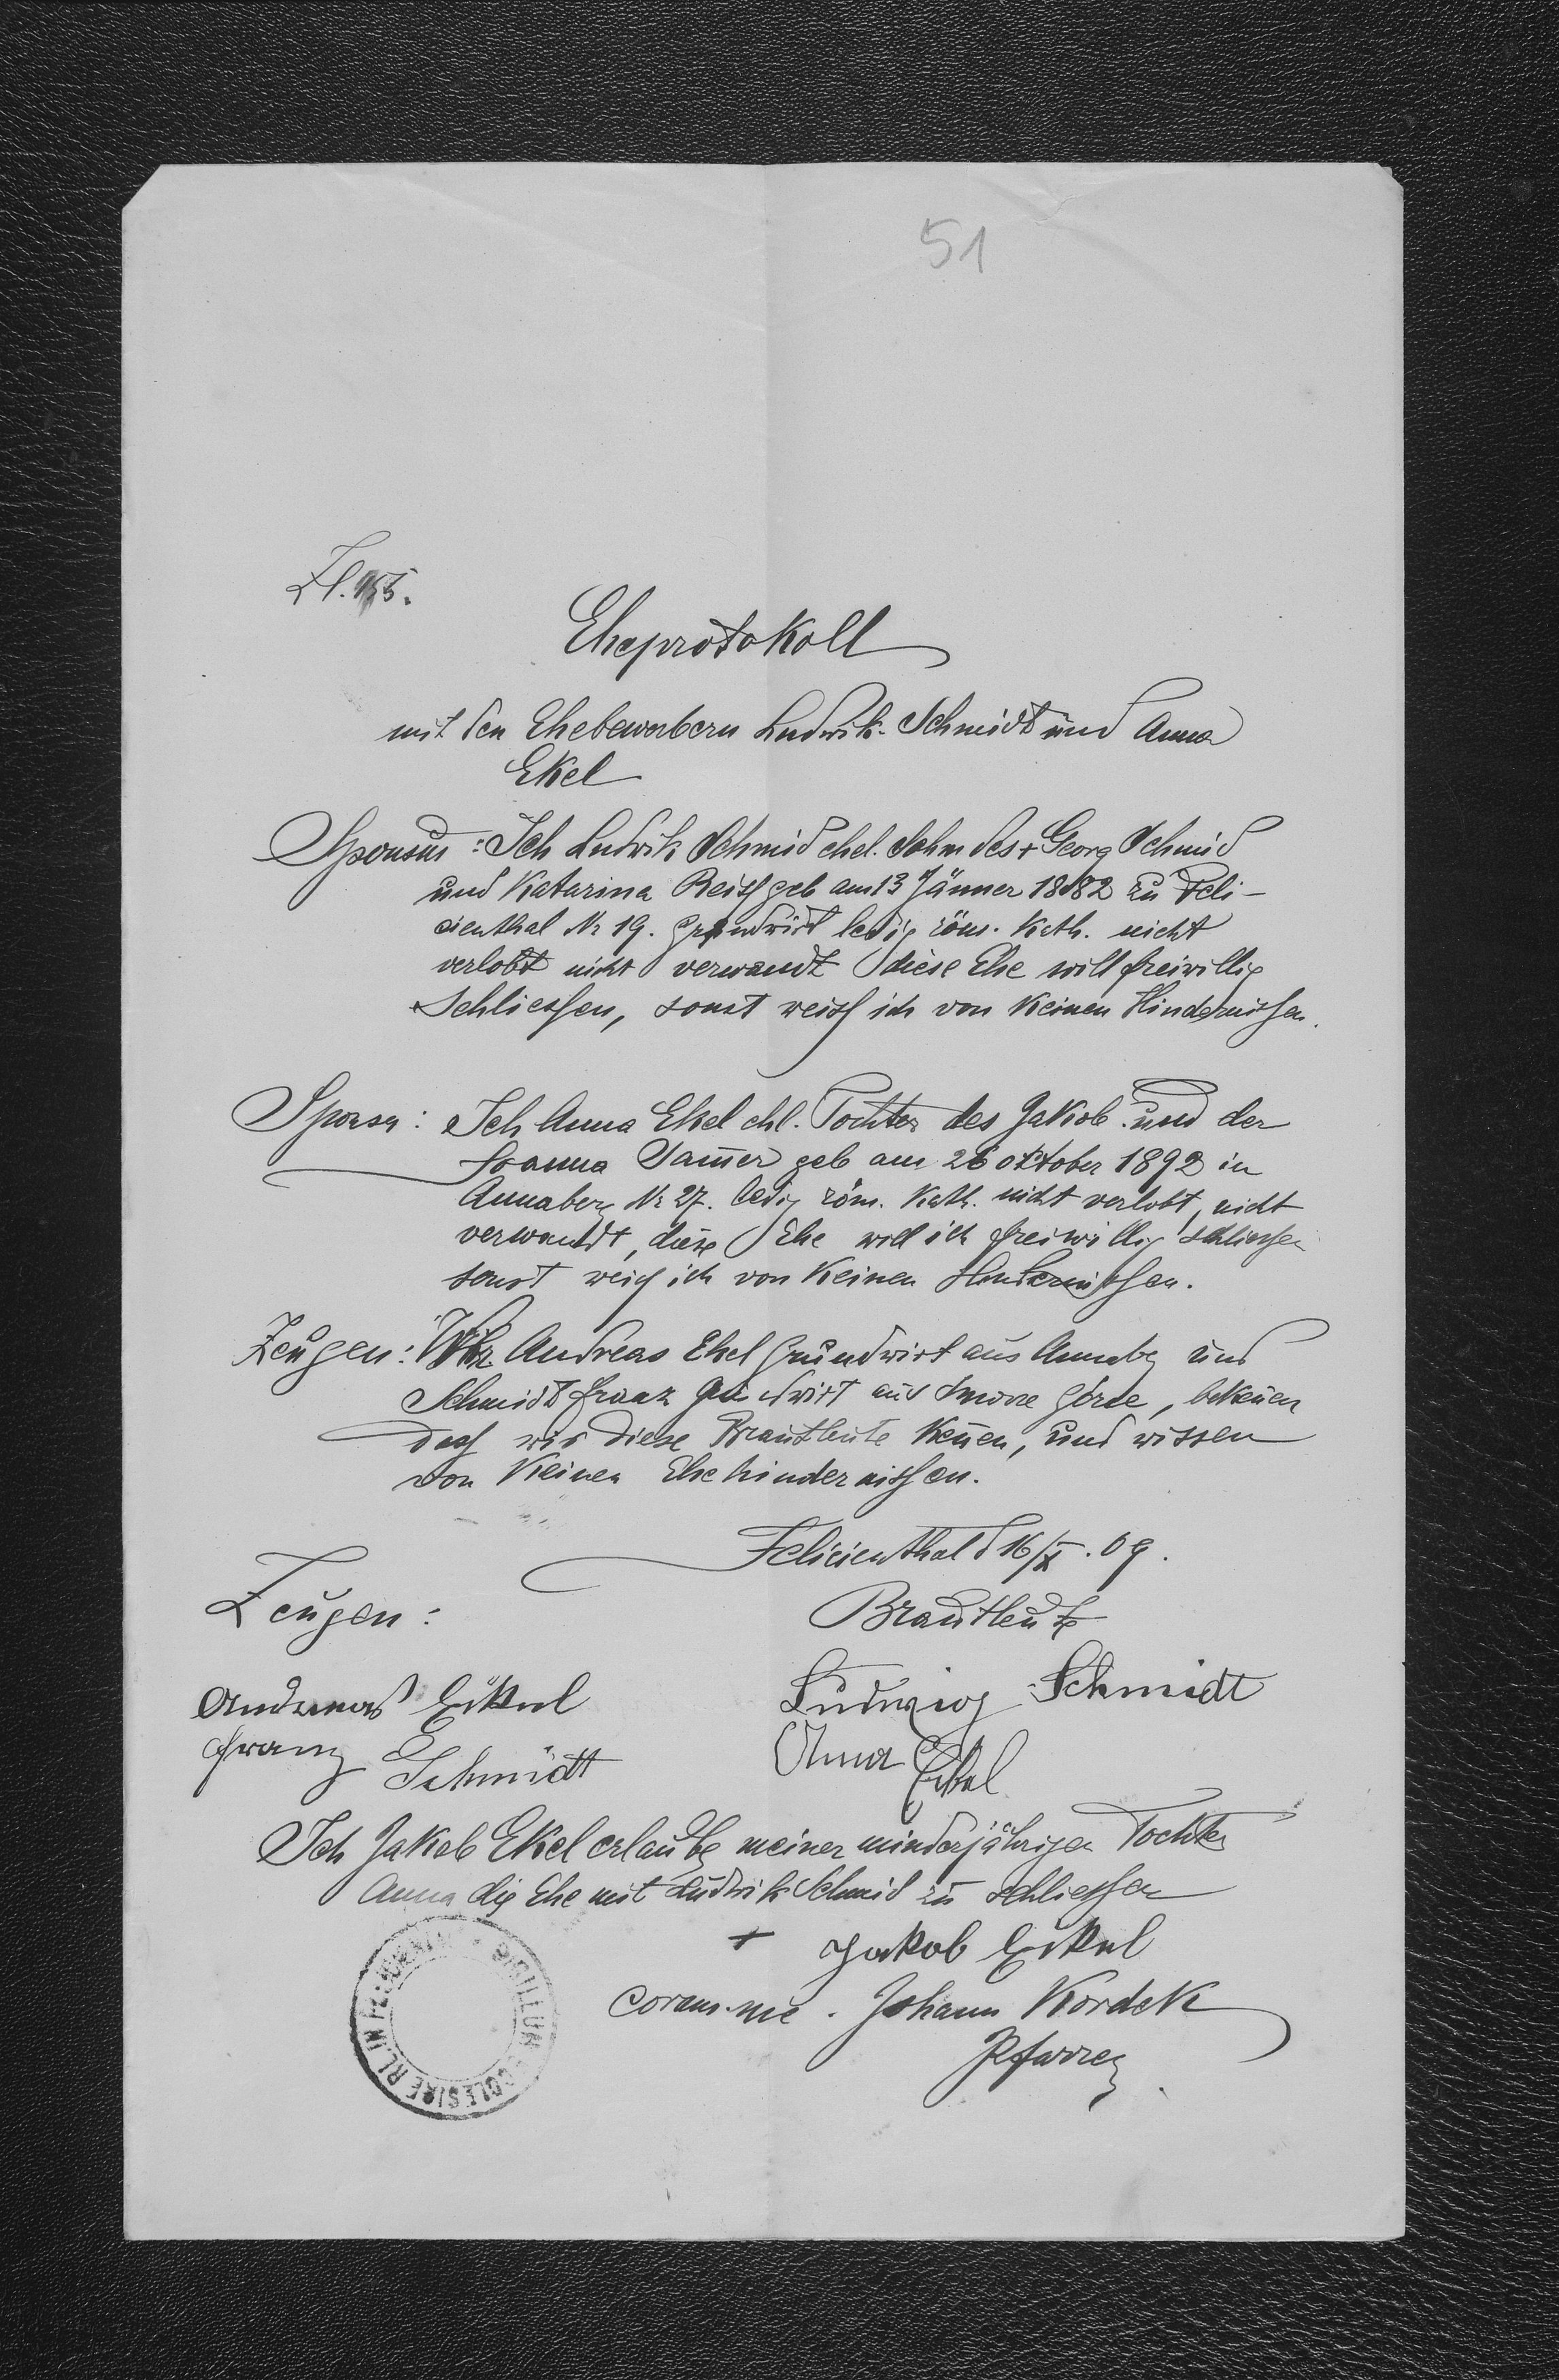 51
Zl. 155.
Eheprotokoll
mit den Ehebewerbern Ludwik Schmidt und Anna
Ekel
Sponsus: Ich Ludwik Schmid ehel. Sohn des + Georg Schmid
und Katarina Reisz geb am 13 Jänner 1882 zu Feli-
cienthal Nr 19. Grundwirt ledig röm. Kath. nicht
verlobt nicht verwandt diese Ehe will freiwillig
schliessen, sonst weiss ich von Keinen Hindernissen.
Sponsa: Ich Anna Ekel ehl. Tochter des Jakob und der
Joanna geb am 26 oktober 1892 in
Annaberg Nr 27. ledig röm. Kath. nicht verlobt, nicht
verwandt, diese Ehe will ich freiwillig schliessen
sonst weiss ich von Keinen Hindernissen.
Zeugen: Wir Andreas Ekel Grundwirt aus Annabg und
Schmidt Franz Grundwirt aus Smorze górne, bekeñen
dass wir diese Brautleute Keñen, und wissen
von Keinen Ehehindernissen.
Felicienthal d 16/X. 09.
Zeugen:
Brautleute
Andreas Eikel
Ludwig Schmidt
Franz Schmidt
Anna Eikel
Ich Jakob Ekel erlaube meiner minderjährigen Tochter
Anna die Ehe mit Ludwik Schmid zu schliessen
+ Jakob Eikel
Coram me. Johann Kordek
Pfarrer
SIGILLUM ECCLESIAE